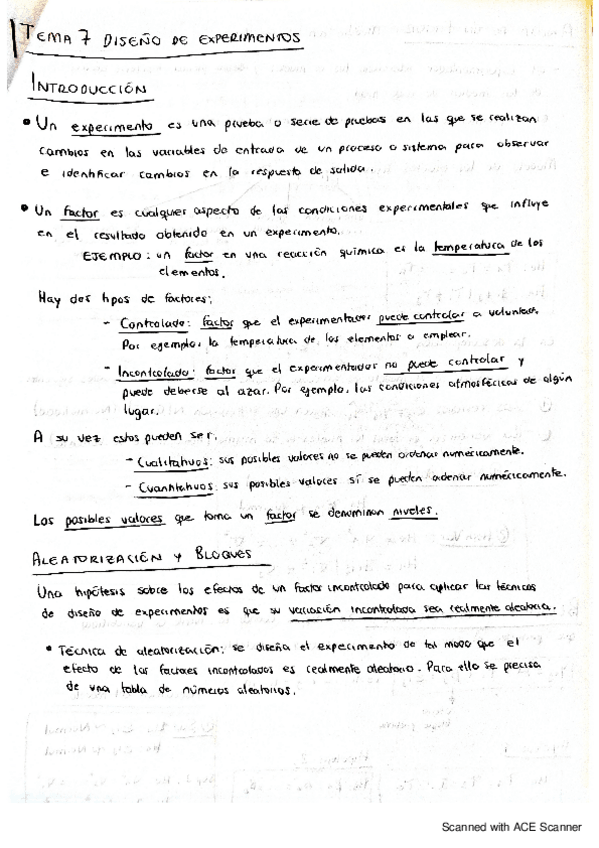 TEMA 7 DISEÑO DE EXPERIMENTOS
INTRODUCCIÓN
• Un experimento es una prueba o serie de pruebas en las que se realizan
cambios en las variables de entrada de un proceso o sistema para observar
e identificar cambios en la respuesta de salida.
• Un factor es cualquier aspecto de las condiciones experimentales que influye
en el resultado obtenido en un experimento.
EJEMPLO: un factor en una reacción química es la temperatura de los
elementos.
Hay dos tipos de factores:
- Controlado: factor que el experimentador puede controlar a voluntad.
Por ejemplo, la temperatura de los elementos a emplear.
- Incontrolado: factor que el experimentador no puede controlar y
puede deberse al azar. Por ejemplo, las condiciones atmosféricas de algún
lugar.
A su vez estos pueden ser.
- Cualitativos: sus posibles valores no se pueden ordenar numéricamente.
- Cuantitativos: sus posibles valores sí se pueden ordenar numéricamente.
Los posibles valores que toma un factor se denominan niveles.
ALEATORIZACIÓN Y BLOQUES
Una hipótesis sobre los efectos de un factor incontrolado para aplicar las técnicas
de diseño de experimentos es que su variación incontrolada sea realmente aleatoria.
• Técnica de aleatorización: se diseña el experimento de tal modo que el
efecto de los factores incontrolados es realmente aleatorio. Para ello se precisa
de una tabla de números aleatorios.
Scanned with ACE Scanner